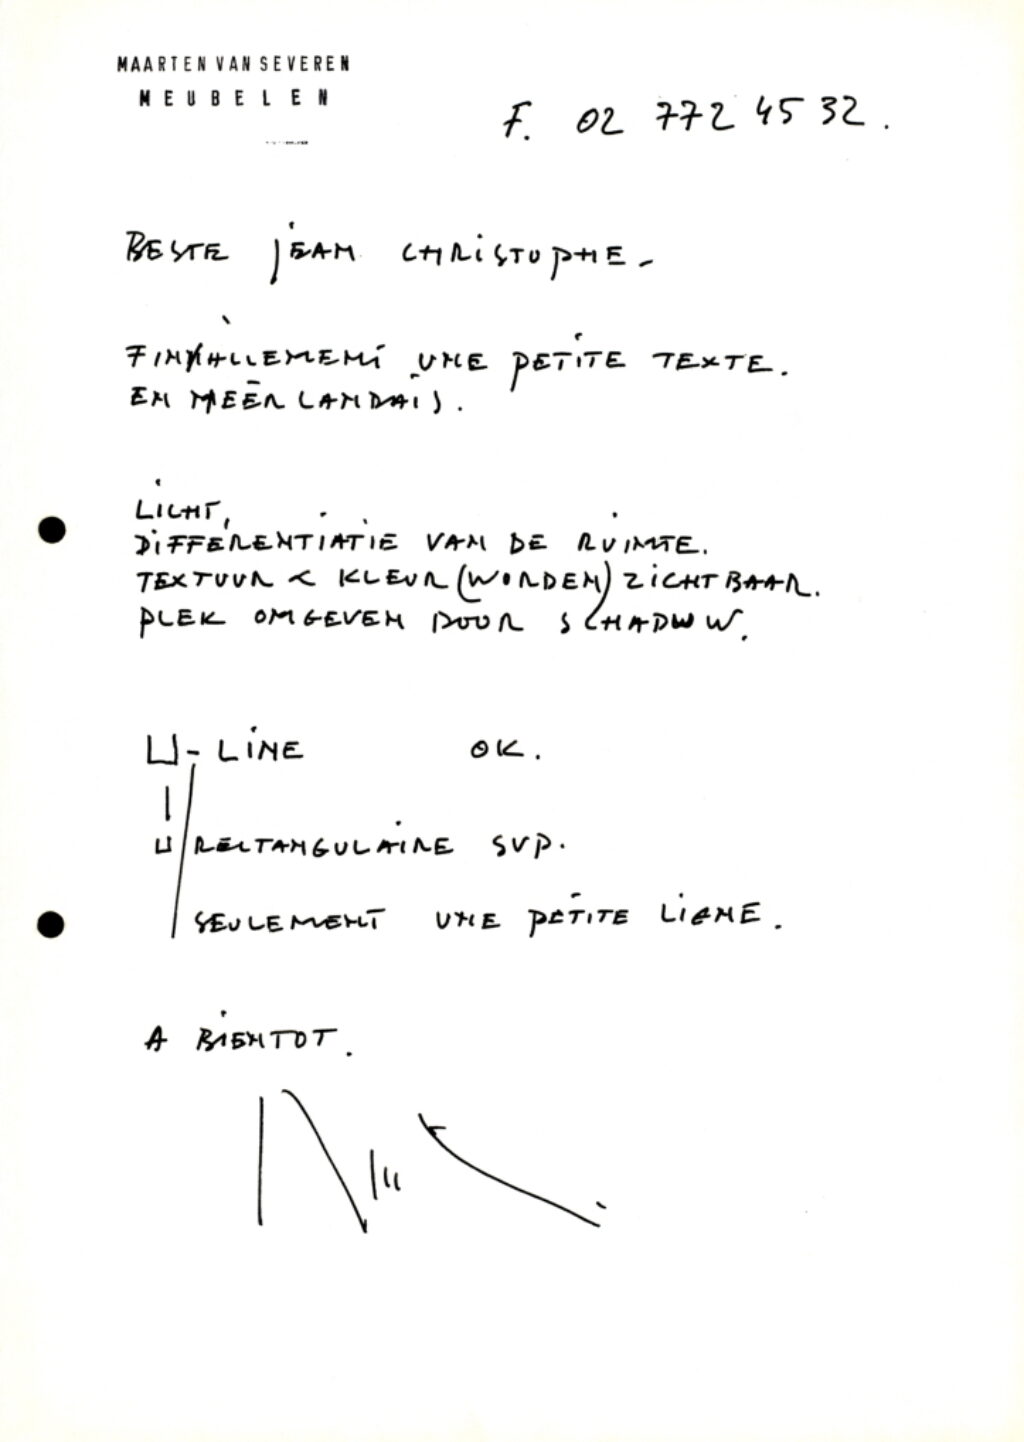 MAARTEN VAN SEVEREN
MEUBELEN
F. 02 772 45 32.
BESTE JEAN CHRISTOPHE -
FINALLEMENT UNE PETITE TEXTE.
EN NEERLANDAIS.
LICHT,
DIFFERENTIATIE VAN DE RUIMTE.
TEXTUUR < KLEUR (WORDEN) ZICHTBAAR.
PLEK OMGEVEN DOOR SCHADUW.
U-LINE OK.
U RECTANGULAIRE SVP.
SEULEMENT UNE PETITE LIGNE.
A BIENTOT.